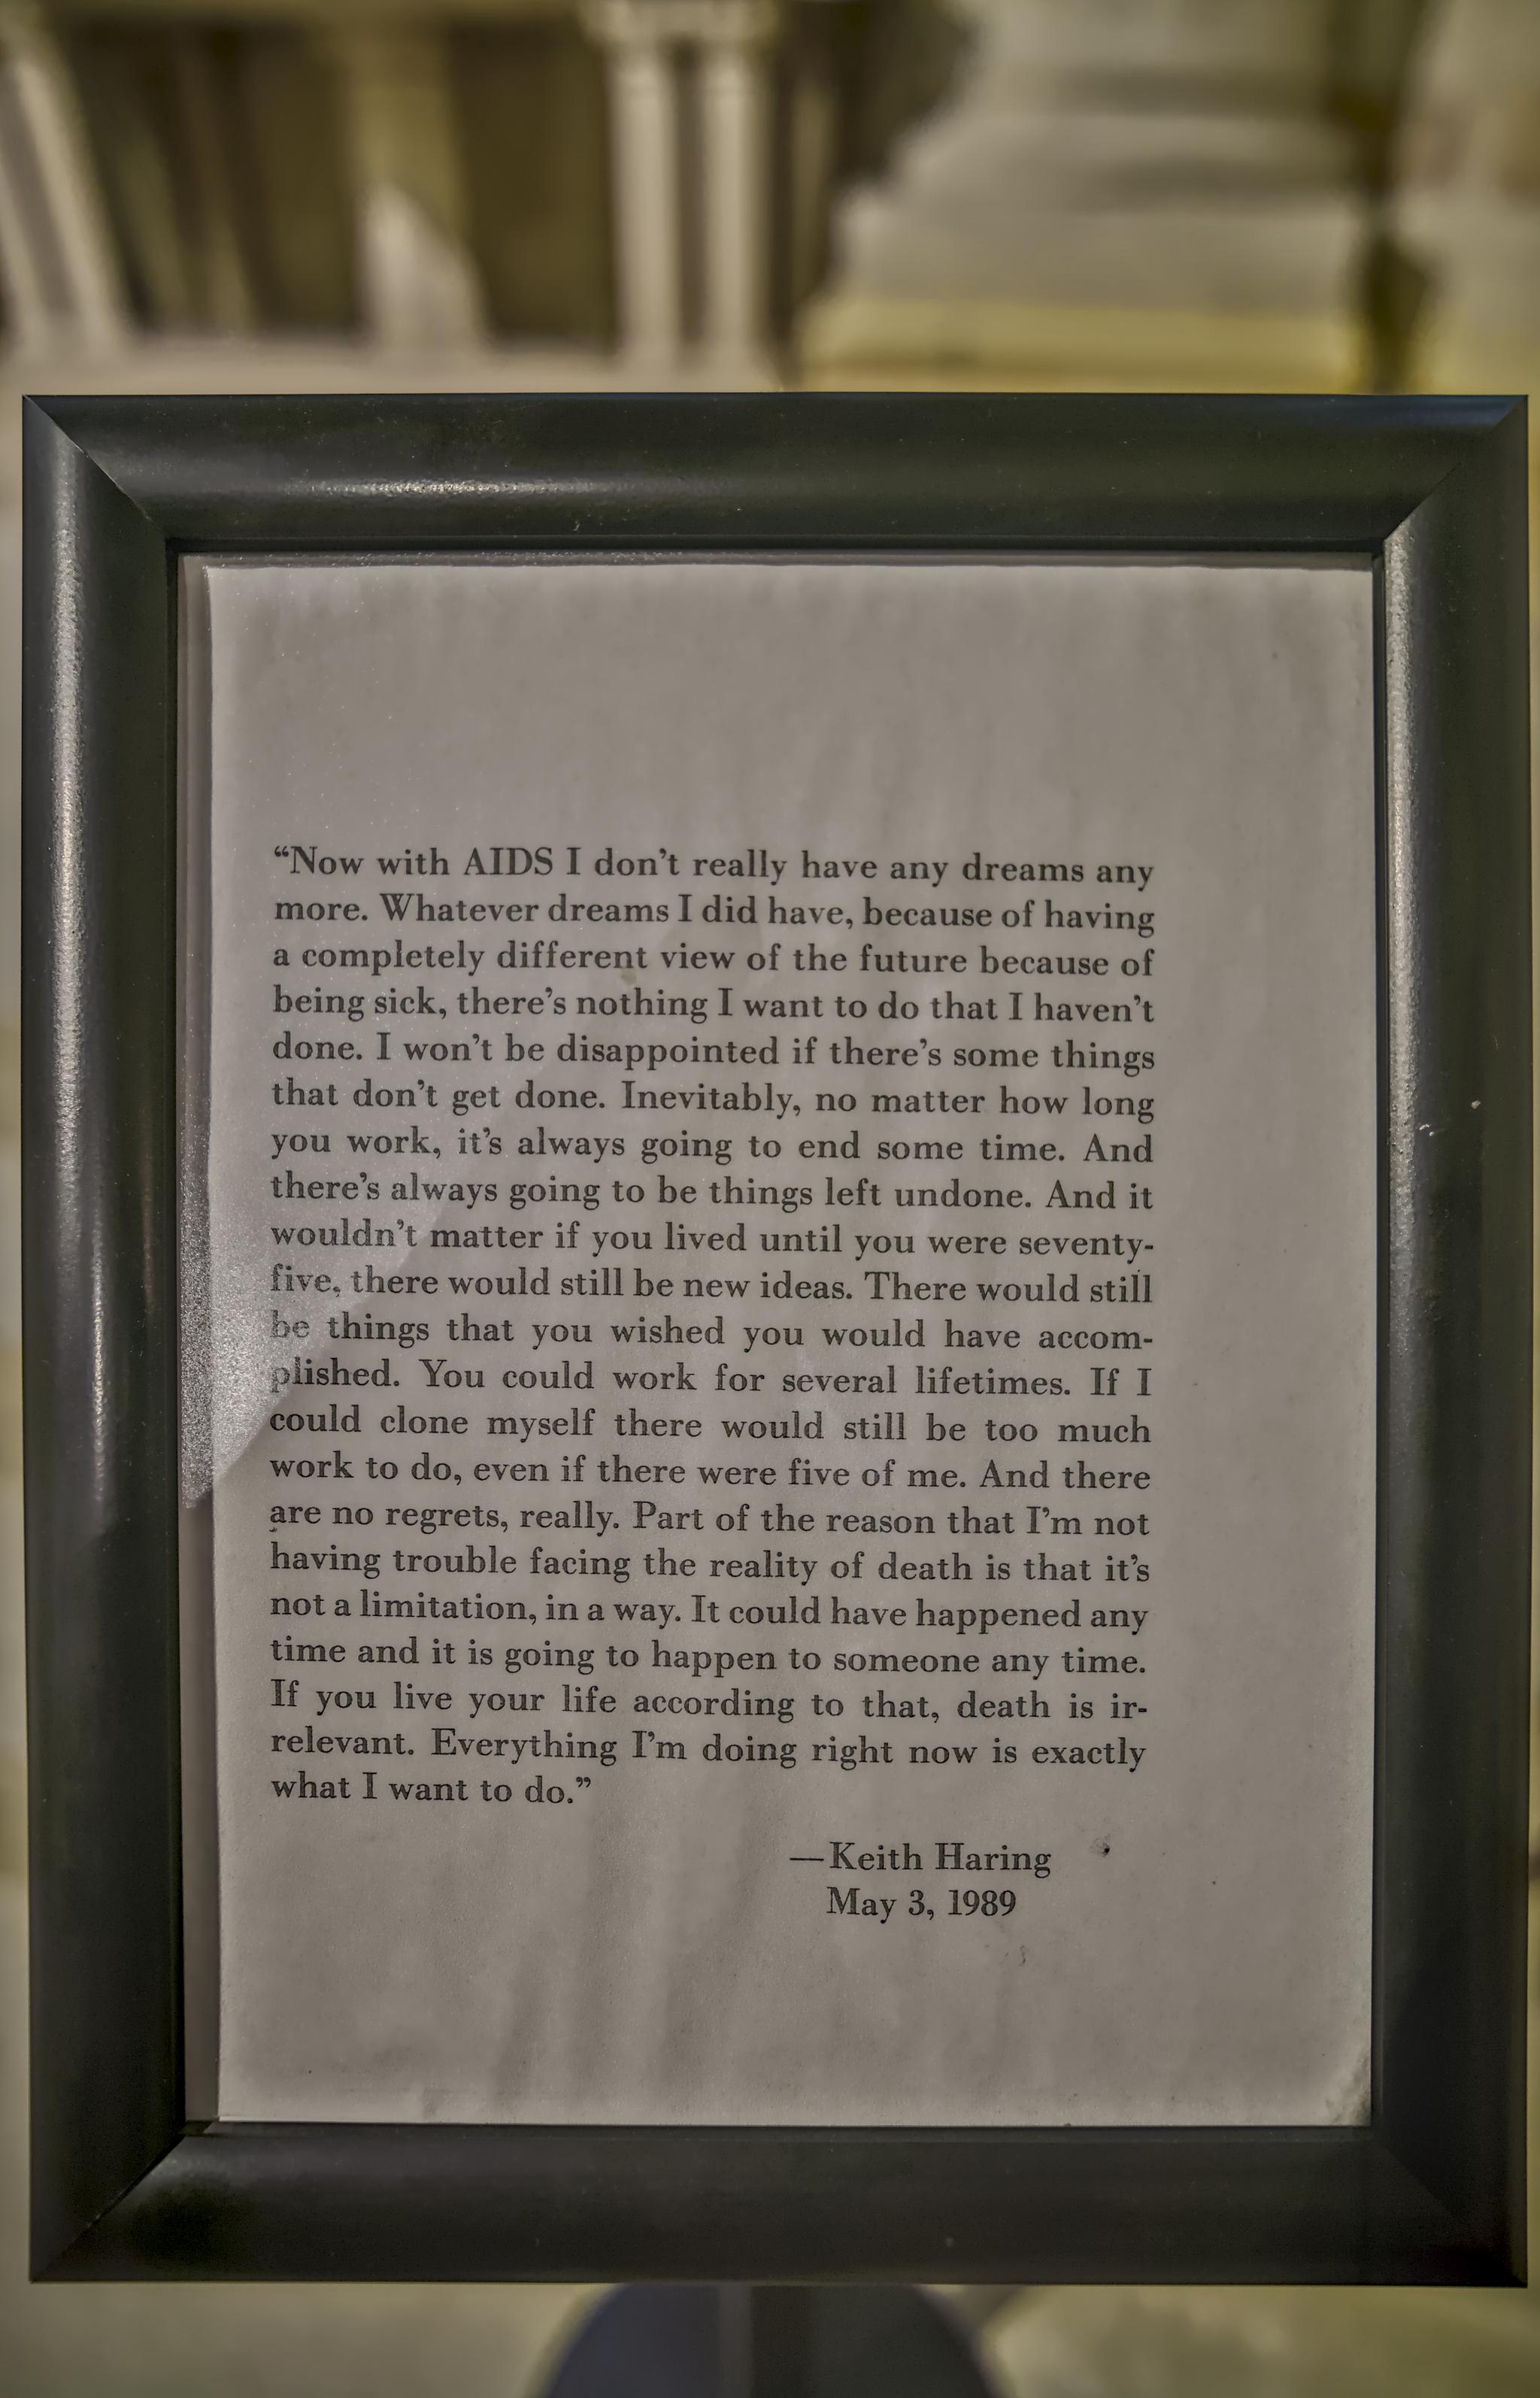 “Now with AIDS I don’t really have any dreams any
more. Whatever dreams I did have, because of having
a completely different view of the future because of
being sick, there’s nothing I want to do that I haven’t
done. I won’t be disappointed if there’s some things
that don’t get done. Inevitably, no matter how long
you work, it’s always going to end some time. And
there’s always going to be things left undone. And it
wouldn’t matter if you lived until you were seventy-
five, there would still be new ideas. There would still
be things that you wished you would have accom-
plished. You could work for several lifetimes. If I
could clone myself there would still be too much
work to do, even if there were five of me. And there
are no regrets, really. Part of the reason that I’m not
having trouble facing the reality of death is that it’s
not a limitation, in a way. It could have happened any
time and it is going to happen to someone any time.
If you live your life according to that, death is ir-
relevant. Everything I’m doing right now is exactly
what I want to do.”
—Keith Haring
May 3, 1989